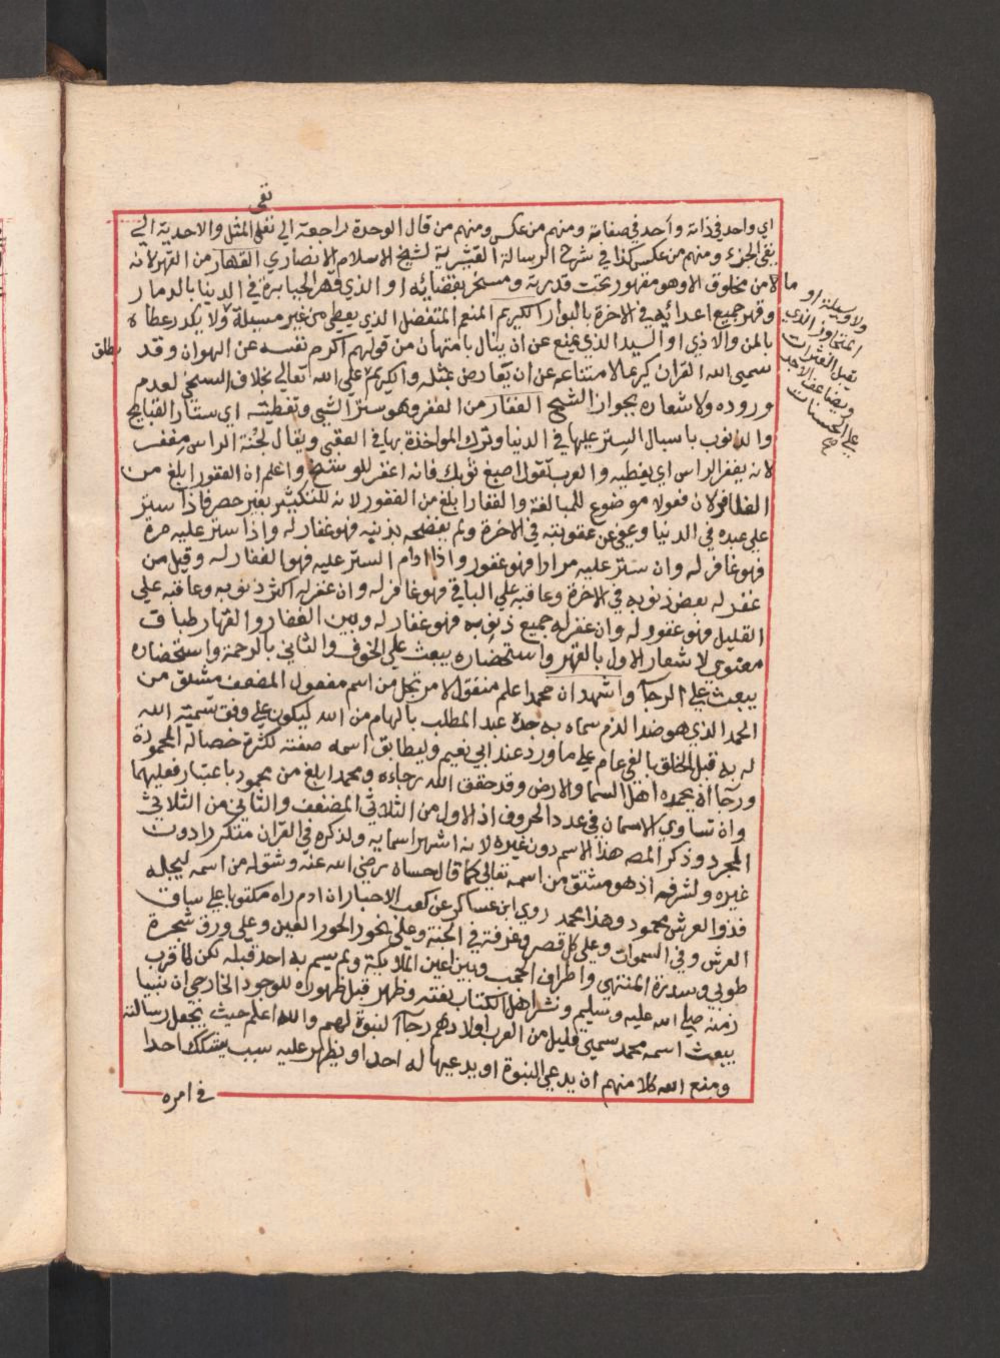 نفى
اي واحد في ذاته واحد في صفاته ومنهم من عكس ومنهم من قال الوحدة راجعة الي نفي المثل والاحدية الي
نفي الجزء ومنهم من عكس كذا في شرح الرسالة القشيرية لشيخ الاسلام الانصاري القهار من القهر لانه
ما من مخلوق الا وهو مقهور تحت قدرته ومسخر بقضائه او الذي قهر الجبابرة في الدنيا بالدمار
وقهر جميع اعدائه في الاخرة بالبوار الكريم المنعم المتفضل الذي يعطي من غير مسيلة ولا يكدر عطاه
بالمن والاذي او السيد الذي يمنع عن ان ينال بامتهان من قولهم اكرم نفسه عن الهوان وقد يطلق
سمي الله القران كريما لامتناعه عن ان يعارض بمثله والكريم علي الله تعالي بخلاف السخي لعدم
وروده ولاشعاره بجواز الشح الغفار من الغفر وهو ستر الشي وتغطيته اي ستار القبايح
والذنوب باسبال الستر عليها في الدنيا وترك المواخذة بها في العقبي ويقال لجنة الراس مغفر
لانه يغفر الراس اي يغطيه والعرب تقول اصبغ ثوبك فانه اغفر للوسخ واعلم ان الغفور ابلغ من
الغافر لان فعولا موضوع للمبالغة والغفار ابلغ من الغفور لانه للتكثير بغير حصر فاذا ستر
علي عبده في الدنيا وعفي عن عقوبته في الاخرة ولم يفضحه بذنبه فهو غفار له واذا ستر عليه مرة
فهو غافر له وان ستر عليه مرارا فهو غفور واذا ادام الستر عليه فهو الغفار له وقيل من
غفر له بعض ذنوبه في الاخرة وعاقبه علي الباقي فهو غافر له وان غفر له اكثر ذنوبه وعاقبه علي
القليل فهو غفور له وان غفر له جميع ذنوبه فهو غفار له وبين الغفار والقهار طباق
معنوي لاشعار الاول بالقهر واستحضاره يبعث علي الخوف والثاني بالرحمة واستحضاره
يبعث علي الرجا واشهد ان محمدا علم منقول لا مرتجل من اسم مفعول المضعف مشتق من
الحمد الذي هو ضد الذم سماه به جده عبد المطلب بالهام من الله ليكون علي وفق تسميته الله
له به قبل الخلق بالفي عام علي ما ورد عند ابي نعيم وليطابق اسمه صفته لكثرة خصاله المحمودة
ورجا ان يحمده اهل السما والارض وقد حقق الله رجاءه ومحمد ابلغ من محمود باعتبار فعليهما
وان تساوي الاسمان في عدد الحروف اذ الاول من الثلاثي المضعف والثاني من الثلاثي
المجرد وذكر المص هذا الاسم دون غيره لانه اشهر اسمايه ولذكره في القران متكررا دون
غيره ولشرفه اذ هو مشتق من اسمه تعالي كما قال حسان رضي الله عنه وشق له من اسمه ليجله
فذو العرش محمود وهذا محمد روي ابن عساكر عن كعب الاحبار ان ادم راه مكتوبا علي ساق
العرش وفي السموات وعلي كل قصر وغرفة في الجنة وعلي نحور الحور العين وعلي ورق شجرة
طوبي وسدرة المنتهي واطراف الحجب وبين اعين الملايكة ولم يسم به احد قبله لكن لما قرب
زمنه صلي الله عليه وسليم ونشر اهل الكتاب نعته وظهر قبل ظهوراه للوجود الخارجي ان نبيا
يبعث اسمه محمد سمي قليل من العرب اولادهم رجا النبوة لهم والله اعلم حيث يجعل رسالته
ومنع الله كلا منهم ان يدعي النبوة او يدعيها له احد او يظهر عليه سبب يشكك احدا
في امره
ولا وسيلة او
المتجاوز الذي
يقبل العثرات
ويضاعف الاجر
علي الحسنات
صح